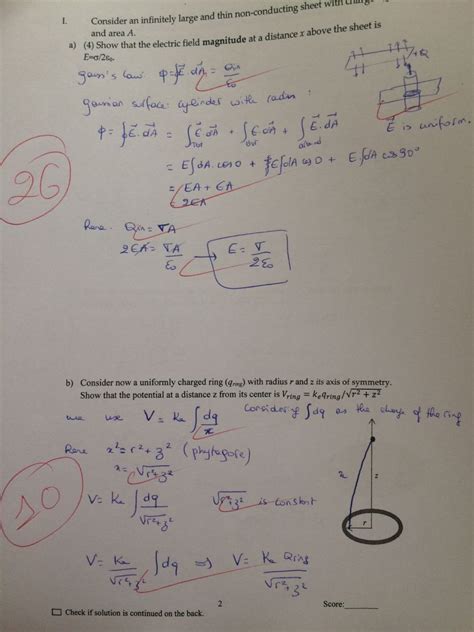 I. Consider an infinitely large and thin non-conducting sheet with charge
and area A.
a) (4) Show that the electric field magnitude at a distance x above the sheet is
E=σ/2ε₀.
gauss's law Φ=∮E⃗ dA⃗ = Qin/ε₀
+Q
gaussian surface: cylinder with radius :
E⃗ is uniform.
Φ = ∮E⃗.dA⃗ = ∫E⃗.dA⃗ + ∫E⃗.dA⃗ + ∫E⃗.dA⃗
= E∫dA.cos0 + E∫dA cos0 + E.∫dA cos90°
= EA + EA
2EA
26
Here. Qin = σA
2EA = σA/ε₀ → E = σ/2ε₀
b) Consider now a uniformly charged ring (qring) with radius r and z its axis of symmetry.
Show that the potential at a distance z from its center is Vring = keqring/√r² + z²
we use V = Ke ∫dq/x
Considering ∫dq as the charge of the ring
Here x² = r² + z² (phytagore)
x = √r²+z²
x
z
r
10
V = Ke ∫dq/√r²+z² √r²+z² is constant
V = Ke/√r²+z² ∫dq ⇒ V = Ke Qring/√r²+z²
2
Score:
☐ Check if solution is continued on the back.